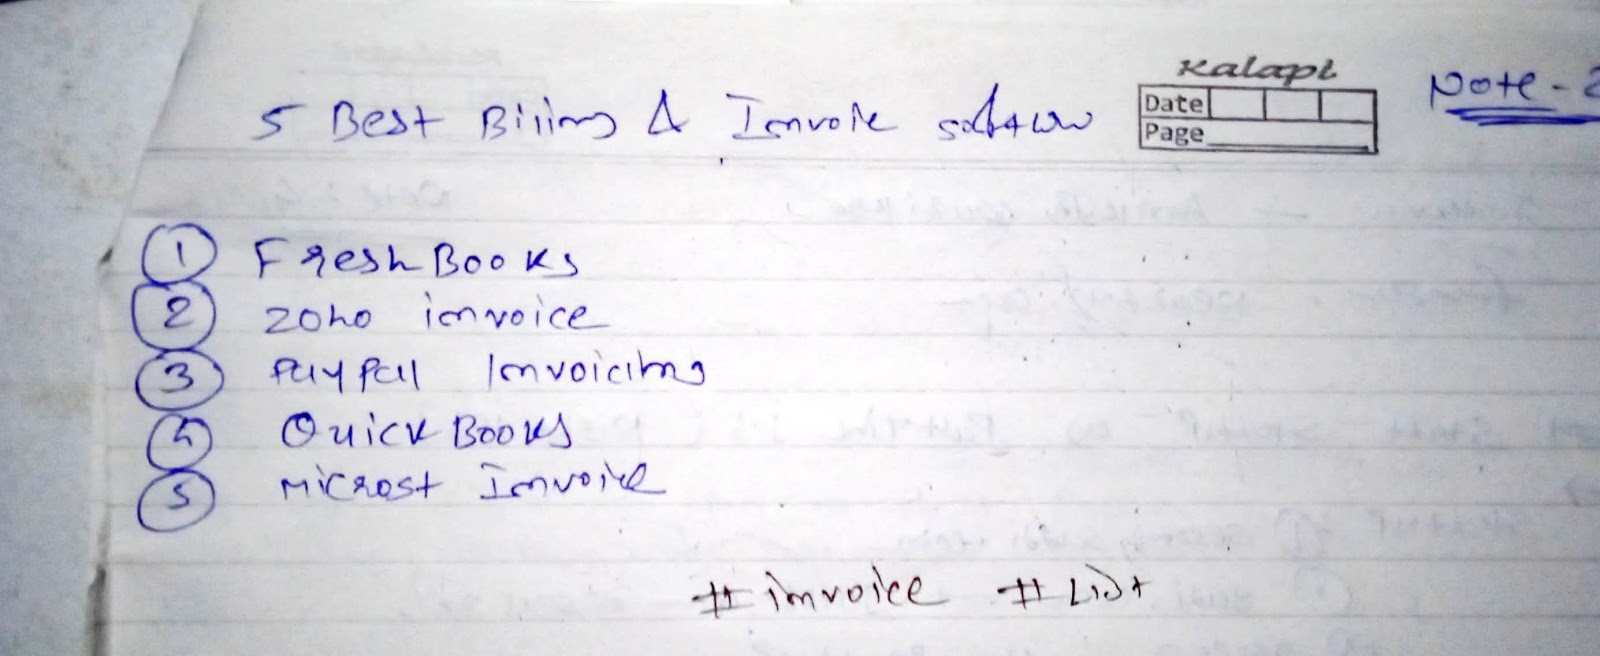 Kalapi
Note-2
5 Best Billing & Invoie software
Date
Page
1 FreshBooks
2 zoho invoice
3 PayPal Invoicing
4 QuickBooks
5 Microst Invoice
#invoice #List